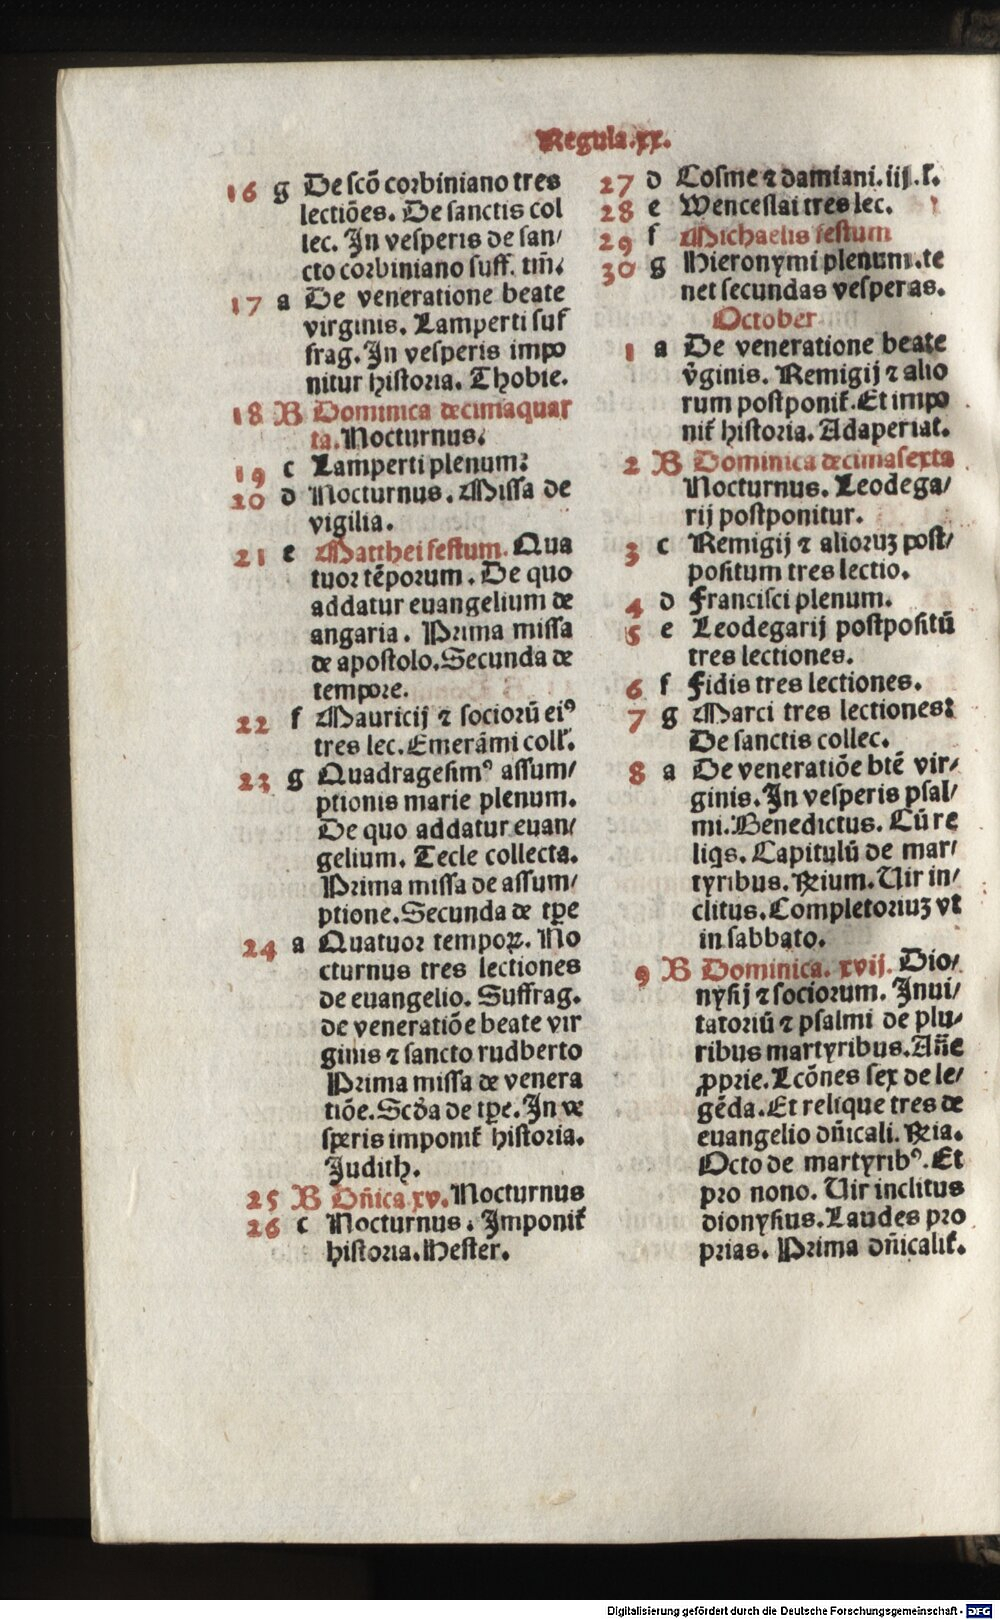 Regula.xx.
16 g De scō corbiniano tres
lectiōes. De sanctis col
lec. In vesperis de san/
cto corbiniano suff. tm̄.
17 a De veneratione beate
virginis. Lamperti suf
frag. In vesperis impo
nitur historia. Thobie.
18 B Dominica decimaquar
ta. Nocturnus.
19 c Lamperti plenum:
20 d Nocturnus. Missa de
vigilia.
21 e Matthei festum. Qua
tuor tēporum. De quo
addatur euangelium de
angaria. Prima missa
de apostolo. Secunda de
tempore.
22 f Mauricij ⁊ sociorū eiꝰ
tres lec. Emerāmi coll̄.
23 g Quadragesimꝰ assum/
ptionis marie plenum.
De quo addatur euan/
gelium. Tecle collecta.
Prima missa de assum/
ptione. Secunda de tꝑe
24 a Quatuor tempoꝝ. No
cturnus tres lectiones
de euangelio. Suffrag.
de veneratiōe beate vir
ginis ⁊ sancto rudberto
Prima missa de venera
tiōe. Scd̄a de tꝑe. In ve
speris imponit̄ historia.
Judith.
25 B Dn̄ica xv. Nocturnus
26 c Nocturnus. Imponit̄
historia. Hester.
27 d Cosme ⁊ damiani. iij. l̄.
28 e Wenceslai tres lec.
29 f Michaelis festum
30 g Hieronymi plenum. te
net secundas vesperas.
October
1 a De veneratione beate
v̄ginis. Remigij ⁊ alio
rum postponit̄. Et impo
nit̄ historia. Adaperiat.
2 B Dominica decimasexta
Nocturnus. Leodega/
rij postponitur.
3 c Remigij ⁊ alioruꝫ post/
positum tres lectio.
4 d Francisci plenum.
5 e Leodegarij postpositū
tres lectiones.
6 f Fidis tres lectiones.
7 g Marci tres lectiones:
De sanctis collec.
8 a De veneratiōe btē vir/
ginis. In vesperis psal/
mi. Benedictus. Cū re
liqs. Capitulū de mar/
tyribus. Rium. Vir in/
clitus. Completoriuꝫ vt
in sabbato.
9 B Dominica. xvij. Dio/
nysij ⁊ sociorum. Inui/
tatoriū ⁊ psalmi de plu/
ribus martyribus. An̄e
ꝓprie. Lcōnes sex de le/
gēda. Et relique tres de
euangelio dn̄icali. Ria.
Octo de martyribꝰ. Et
pro nono. Vir inclitus
dionysius. Laudes pro
prias. Prima dn̄icalit̄.
Digitalisierung gefördert durch die Deutsche Forschungsgemeinschaft - DFG